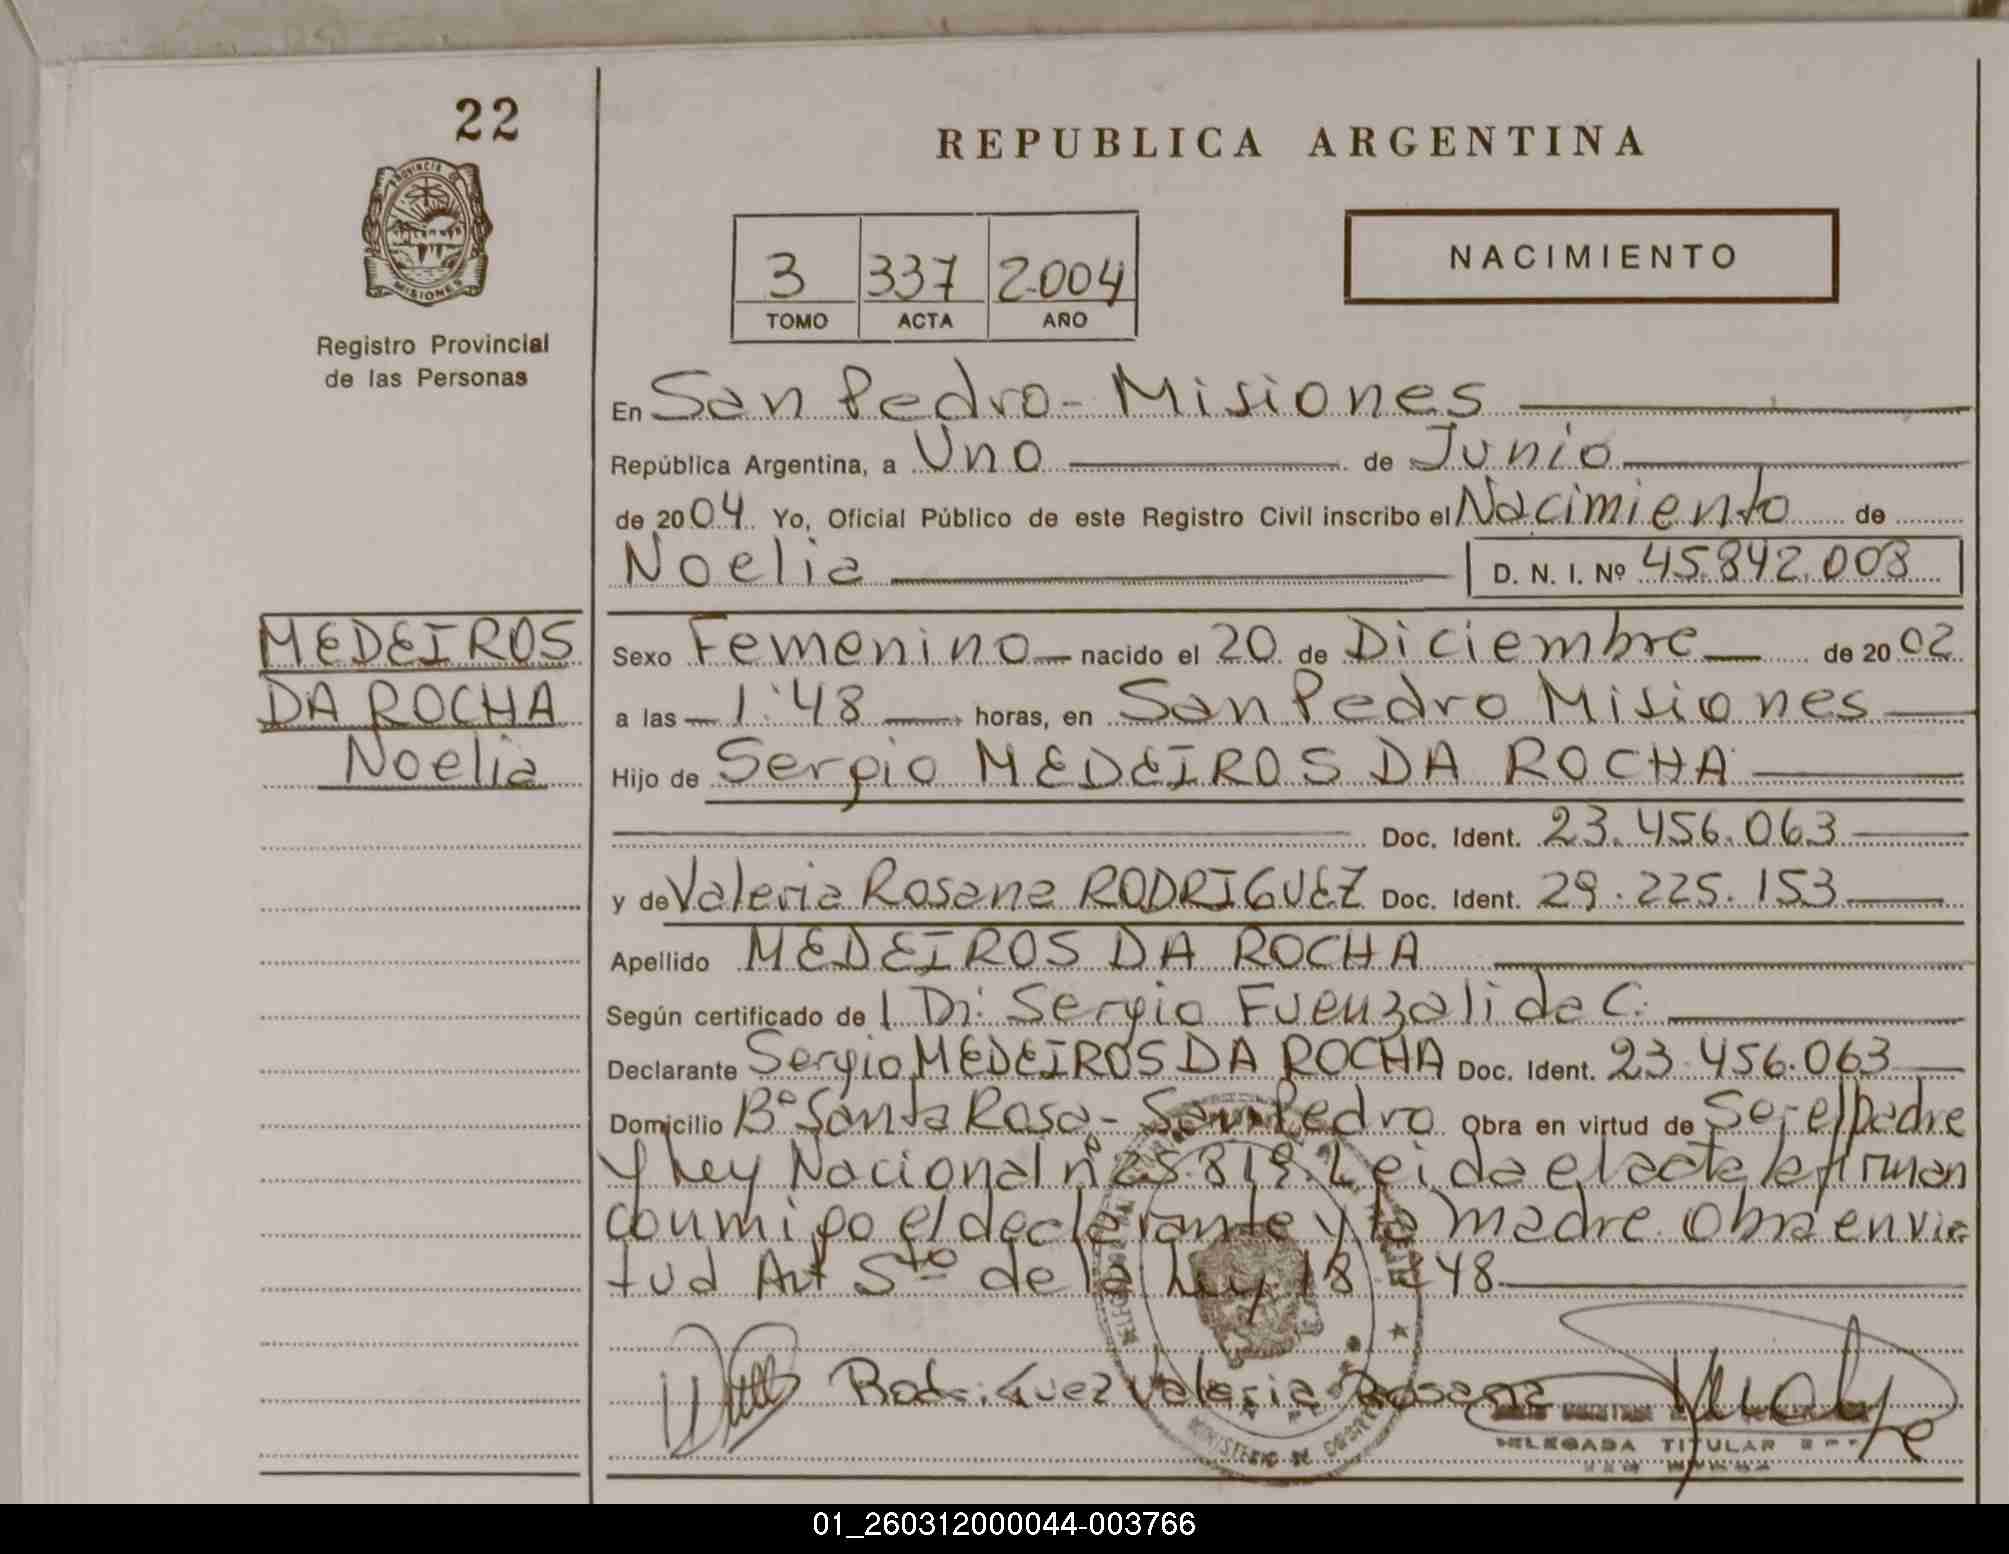 22
REPUBLICA ARGENTINA
PROVINCIA DE
MISIONES
Registro Provincial
de las Personas
3 337 2.004
TOMO ACTA AÑO
NACIMIENTO
En San Pedro - Misiones
República Argentina, a Uno de Junio
de 2004 Yo, Oficial Público de este Registro Civil inscribo el Nacimiento de
Noelia D. N. I. Nº 45.842.008
MEDEIROS
DA ROCHA
Noelia
Sexo Femenino nacido el 20 de Diciembre de 2002
a las 1:48 horas, en San Pedro Misiones
Hijo de Sergio MEDEIROS DA ROCHA
Doc. Ident. 23.456.063
y de Valeria Rosana RODRIGUEZ Doc. Ident. 29.225.153
Apellido MEDEIROS DA ROCHA
Según certificado de Sergio Fuenzalida C.
Declarante Sergio MEDEIROS DA ROCHA Doc. Ident. 23.456.063
Domicilio Bº Santa Rosa - San Pedro Obra en virtud de Ser el padre
y Ley Nacional nº 25.819. Leida el acta la firman
conmigo el declarante y la madre. Obra en vir
tud Art 5to de la Ley 18 248
Rodriguez Valeria Rosana
DELEGADA TITULAR
MINISTERIO DE
01_260312000044-003766